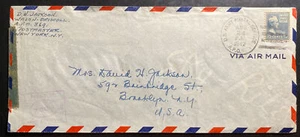 D. H. Jackson
A.P.O. 869
℅ Postmaster
New York, N.Y.
VIA AIR MAIL
Mrs. David H. Jackson
592 Bainbridge St.
Brooklyn, N.Y.
U.S.A.